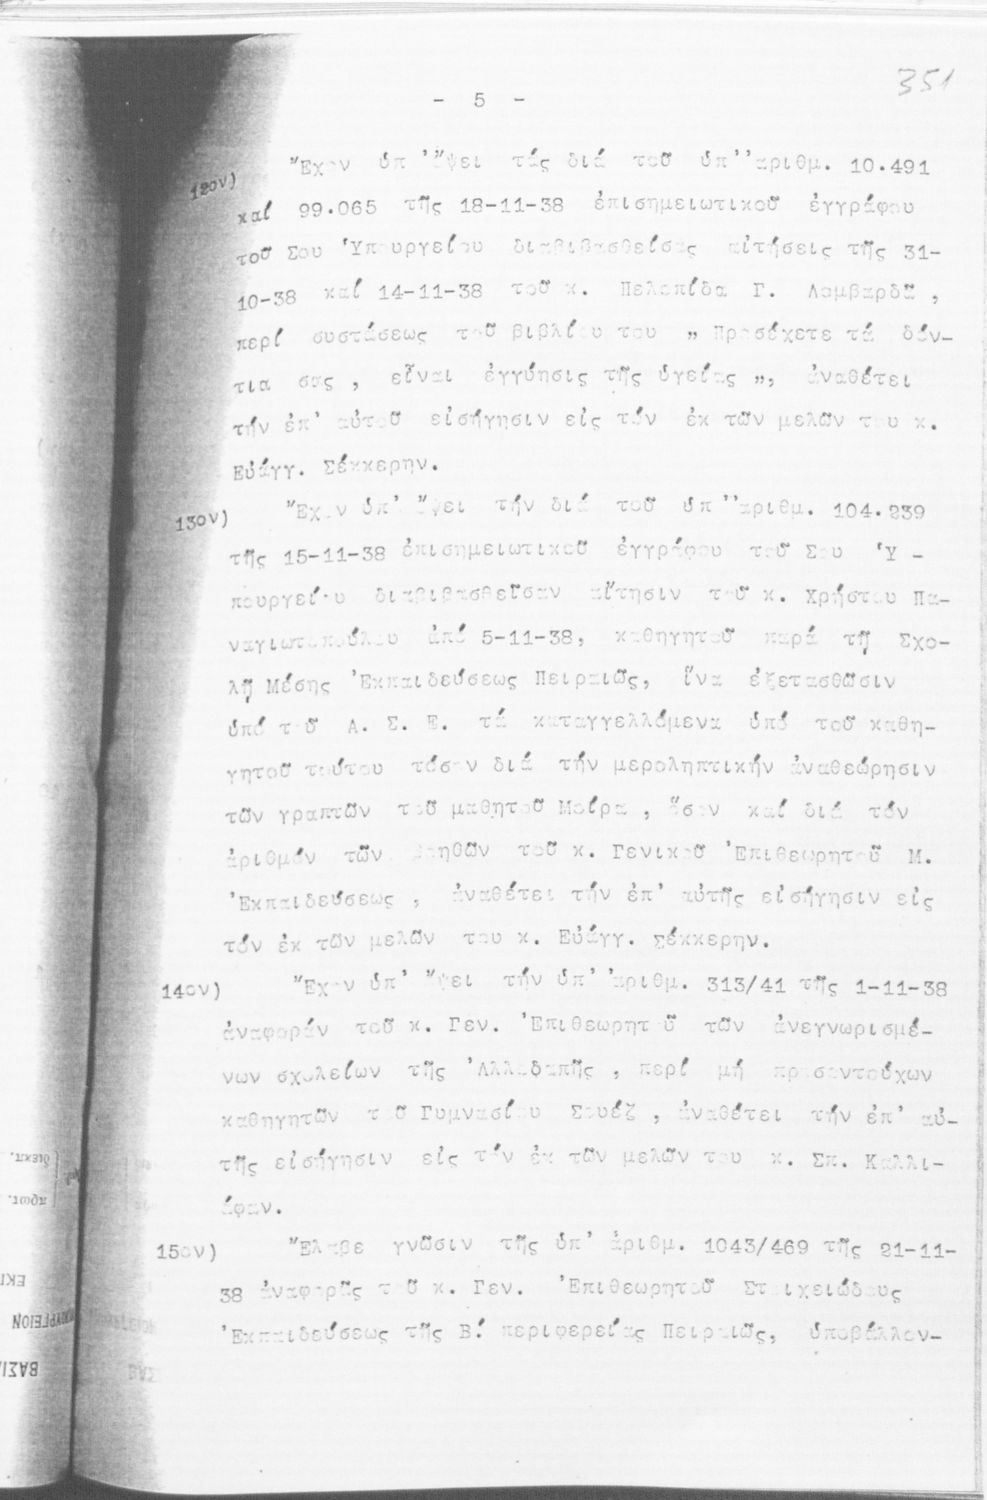 351
- 5 -
12ον) Ἔχον ὑπ' ὄψει τάς διά τοῦ ὑπ' ἀριθμ. 10.491
καί 99.065 τῆς 18-11-38 ἐπισημειωτικοῦ ἐγγράφου
τοῦ Σου Ὑπουργείου διαβιβασθείσας αἰτήσεις τῆς 31-
10-38 καί 14-11-38 τοῦ κ. Πελοπίδα Γ. Λομβαρδᾶ ,
περί συστάσεως τοῦ βιβλίου του „ Προσέχετε τά δόν-
τια σας , εἶναι ἐγγύησις τῆς ὑγείας „, ἀναθέτει
τήν ἐπ' αὐτοῦ εἰσήγησιν εἰς τόν ἐκ τῶν μελῶν του κ.
Εὐάγγ. Σέκκερην.
13ον) Ἔχον ὑπ' ὄψει τήν διά τοῦ ὑπ' ἀριθμ. 104.239
τῆς 15-11-38 ἐπισημειωτικοῦ ἐγγράφου τοῦ Σου Ὑ -
πουργείου διαβιβασθεῖσαν αἴτησιν τοῦ κ. Χρήστου Πα-
ναγιωτοπούλου ἀπό 5-11-38, καθηγητοῦ παρά τῇ Σχο-
λῇ Μέσης Ἐκπαιδεύσεως Πειραιῶς, ἵνα ἐξετασθῶσιν
ὑπό τοῦ Α. Σ. Ε. τά καταγγελλόμενα ὑπό τοῦ καθη-
γητοῦ τούτου τόσον διά τήν μεροληπτικήν ἀναθεώρησιν
τῶν γραπτῶν τοῦ μαθητοῦ Μοίρα , ὅσον καί διά τόν
ἀριθμόν τῶν βοηθῶν τοῦ κ. Γενικοῦ Ἐπιθεωρητοῦ Μ.
Ἐκπαιδεύσεως , ἀναθέτει τήν ἐπ' αὐτῆς εἰσήγησιν εἰς
τόν ἐκ τῶν μελῶν του κ. Εὐάγγ. Σέκκερην.
14ον) Ἔχον ὑπ' ὄψει τήν ὑπ' ἀριθμ. 313/41 τῆς 1-11-38
ἀναφοράν τοῦ κ. Γεν. Ἐπιθεωρητοῦ τῶν ἀνεγνωρισμέ-
νων σχολείων τῆς Ἀλλοδαπῆς , περί μή προσοντούχων
καθηγητῶν τοῦ Γυμνασίου Σουέζ , ἀναθέτει τήν ἐπ' αὐ-
τῆς εἰσήγησιν εἰς τόν ἐκ τῶν μελῶν του κ. Σπ. Καλλι-
άφαν.
15ον) Ἔλαβε γνῶσιν τῆς ὑπ' ἀριθμ. 1043/469 τῆς 21-11-
38 ἀναφορᾶς τοῦ κ. Γεν. Ἐπιθεωρητοῦ Στοιχειώδους
Ἐκπαιδεύσεως τῆς Β! περιφερείας Πειραιῶς, ὑποβάλλον-